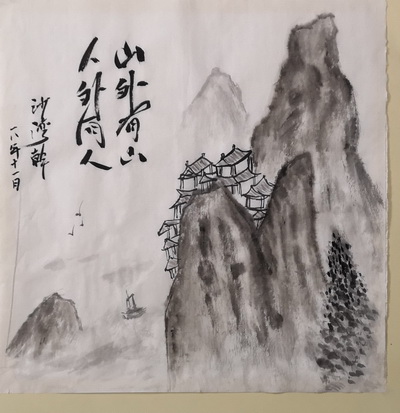 山外有山
人外有人
沙
一八年十一月